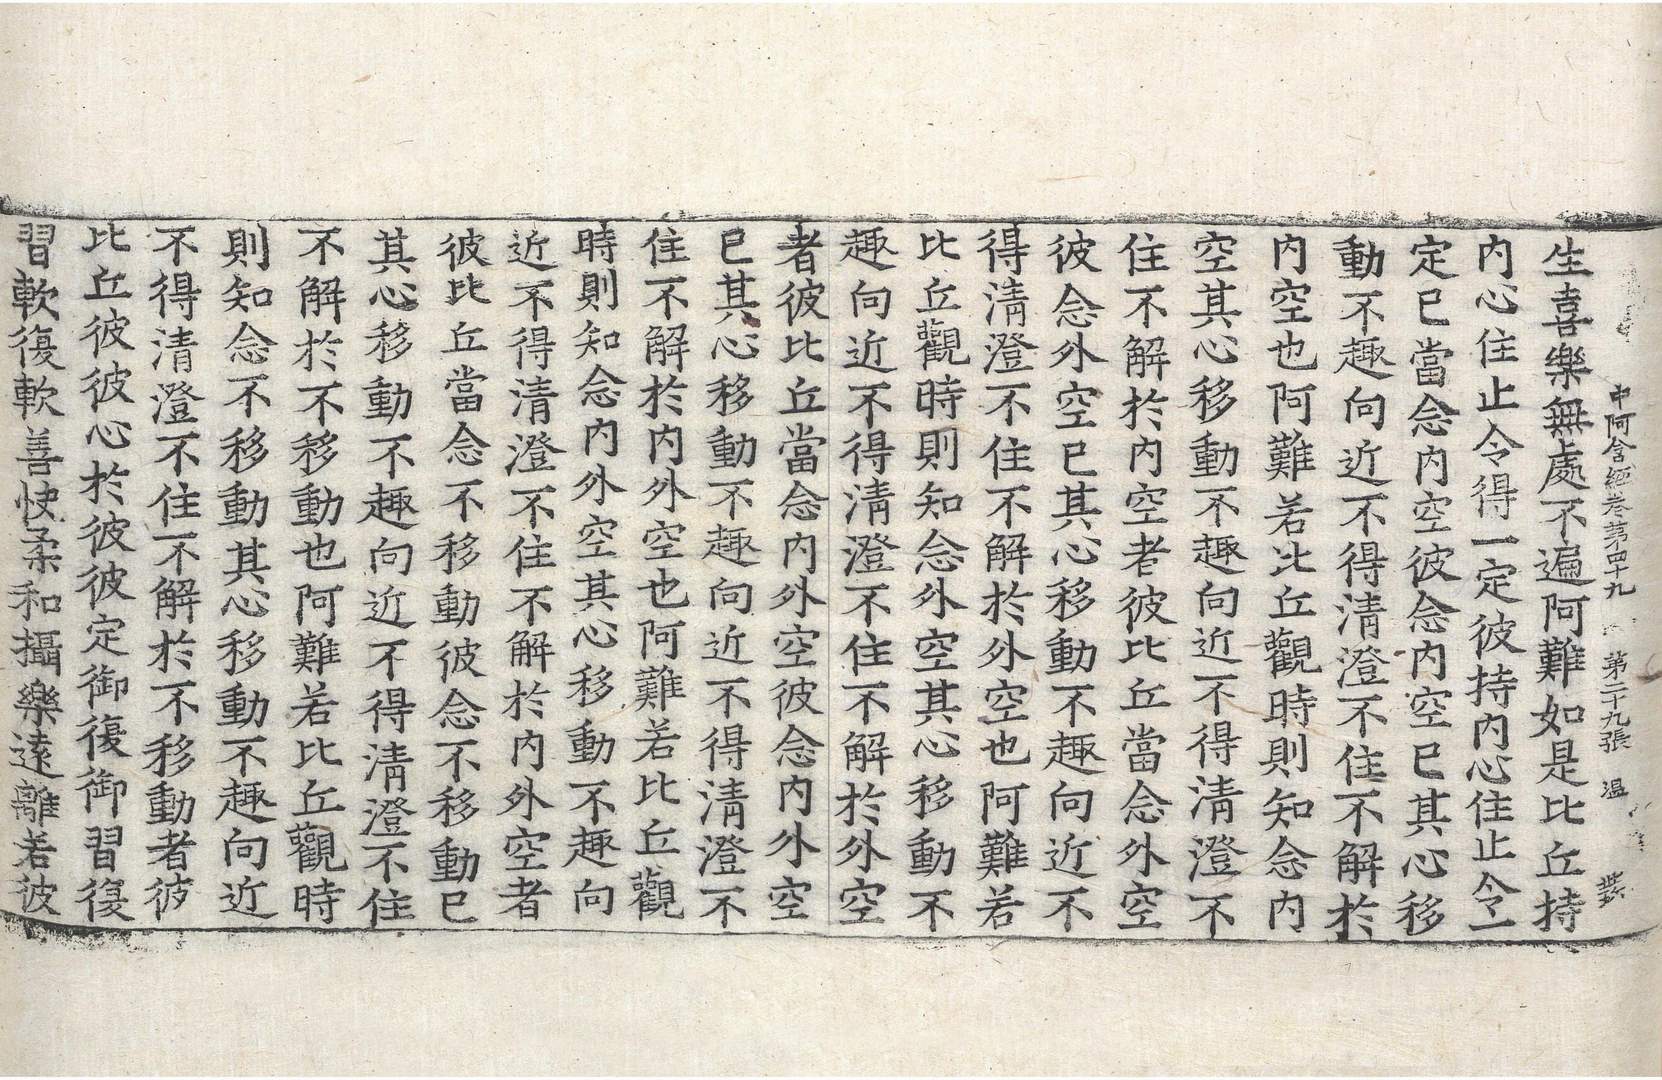 中阿含經卷苐四十九 第二十九張 温
生喜樂無處不遍阿難如是比丘持
内心住止令得一定彼持内心住止令一
定已當念内空彼念内空已其心移
動不趣向近不得清澄不住不解於
内空也阿難若比丘觀時則知念内
空其心移動不趣向近不得清澄不
住不解於内空者彼比丘當念外空
彼念外空已其心移動不趣向近不
得清澄不住不解於外空也阿難若
比丘觀時則知念外空其心移動不
趣向近不得清澄不住不解於外空
者彼比丘當念内外空彼念内外空
已其心移動不趣向近不得清澄不
住不解於内外空也阿難若比丘觀
時則知念内外空其心移動不趣向
近不得清澄不住不解於内外空者
彼比丘當念不移動彼念不移動已
其心移動不趣向近不得清澄不住
不解於不移動也阿難若比丘觀時
則知念不移動其心移動不趣向近
不得清澄不住不解於不移動者彼
比丘彼彼心於彼彼定御復御習復
習軟復軟善快柔和攝樂遠離若彼